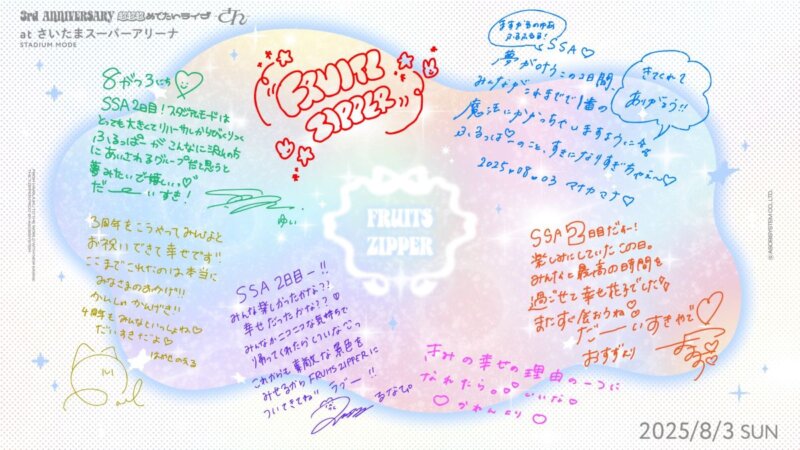 3rd ANNIVERSARY 超超超めでたいライブ さん
at さいたまスーパーアリーナ
STADIUM MODE
8がつ3にち
SSA 2日目!スタジアムモードは
とっても大きくてリハーサルからびっくりっ
ふるっぱーがこんなに沢山の方
にあいされるグループだと思うと
夢みたいで嬉しいっ♡
だーいすき!
ゆい
FRUITS
ZIPPER
ますかきのゆめ
SSA♡
夢が叶うこの2日間、
みんながこれまでで1番の
魔法にかかっちゃいますように
ふるっぱーのこと、すきになりすぎちゃえ〜♡
2025.08.03 マナカマナ♡
きてくれて
ありがとう!!
FRUITS
ZIPPER
3周年をこうやってみんなと
お祝いできて幸せです!!
ここまでこれたのは本当に
みなさまのおかげ!!
かいしゃかんげき!!
4周年もみんなといっしょね♡
だいすきだよ♡
はやせのえる
SSA 2日目ー!!
みんな楽しかったかな?!
幸せだったかな??♡
みんながニコニコな気持ちで
帰ってくれたらいいなぺっ
これからも素敵な景色を
みせるからFRUITS ZIPPERに
ついてきてね!! ラブー!!
るなぴ
SSA 2日目だよー!
楽しみにしていたこの日。
みんなと最高の時間を
過ごせて幸せ花子でした
またすぐ会おうね
だーいすきやで♡
おすずより
きみの幸せの理由の一つに
なれたら。。いいな♡
♡かれんより♡
2025/8/3 SUN